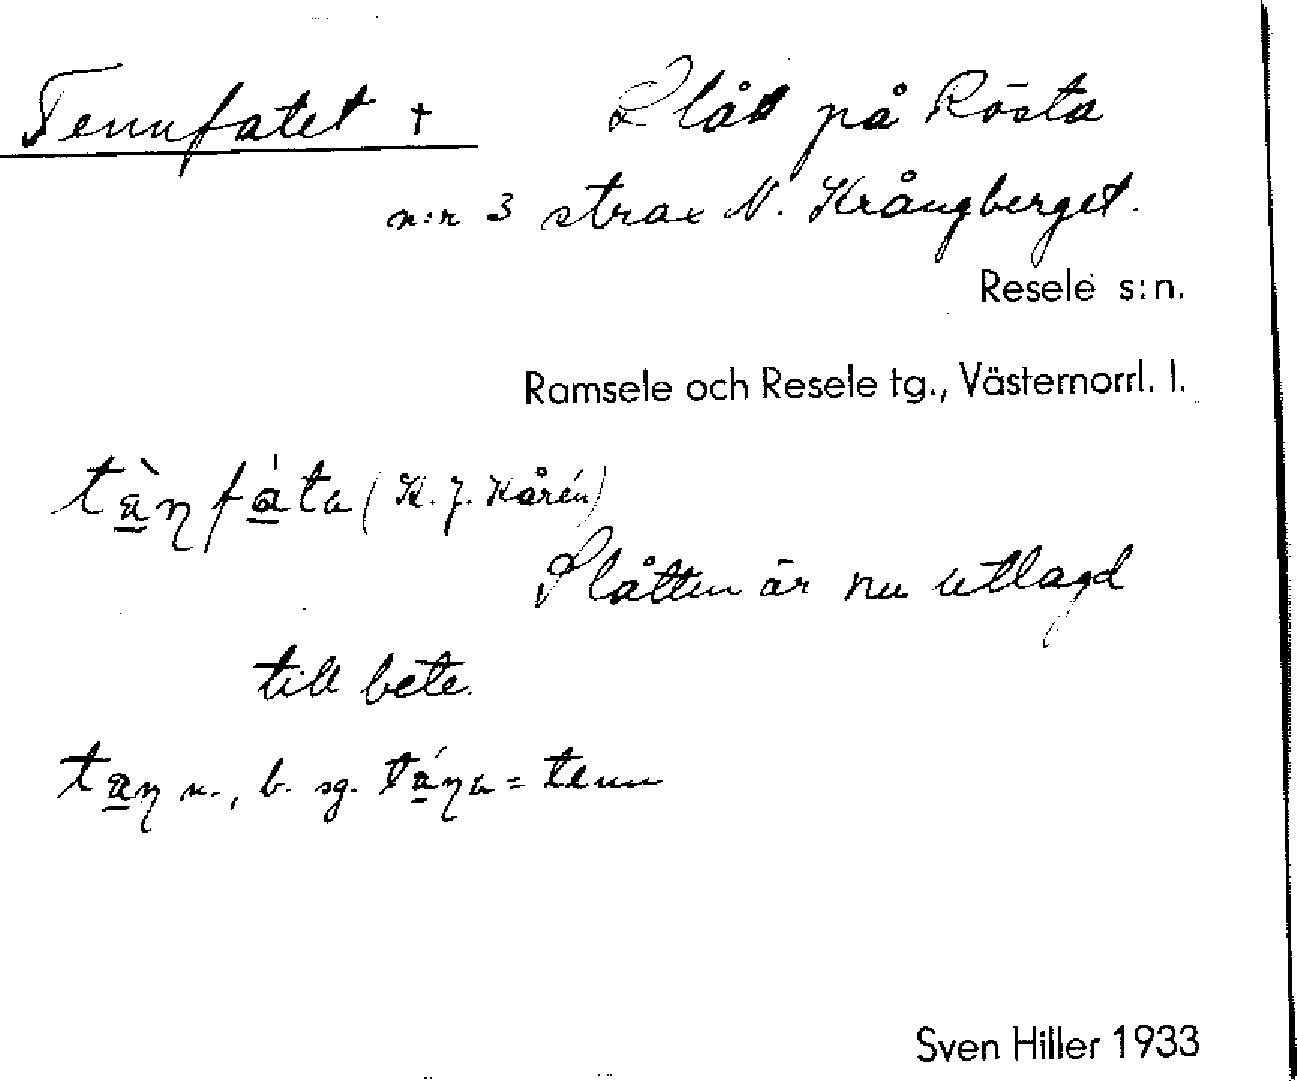 Tennfatet † Slått på Rösta
n:r 3 strax N. Krångberget.
Resele s:n.
Ramsele och Resele tg., Västernorrl. l.
tàn̡fáta (K. J. Kårén)
Slåtten är nu utlagd
till bete.
tan̡ n., b. sg. tán̡a = tenn
Sven Hiller 1933